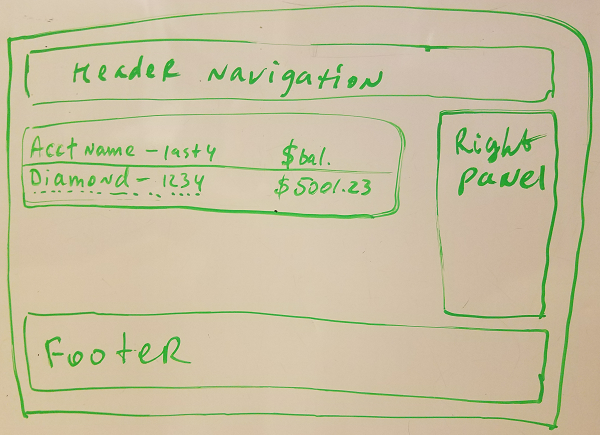 Header Navigation
Acct Name - last4 $bal.
Diamond - 1234 $5001.23
Right
Panel
Footer